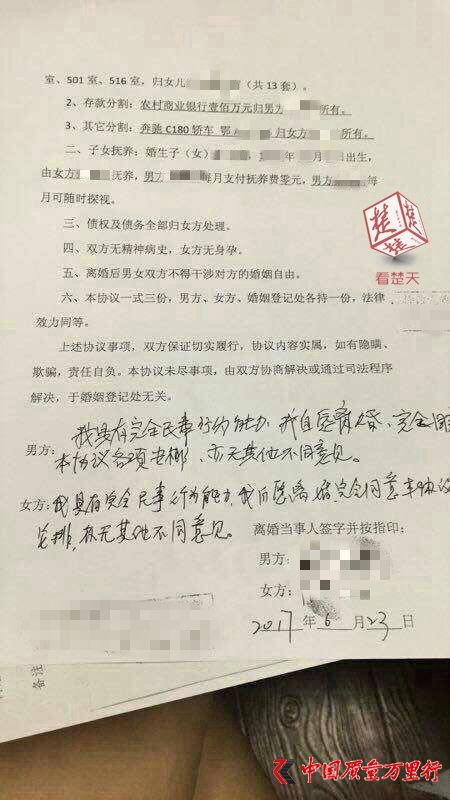 室、501 室、516 室，归女儿（共 13 套）。
2、存款分割：农村商业银行壹佰万元归男方所有。
3、其它分割：奔驰 C180 轿车 鄂 A归女方所有。
二、子女抚养：婚生子（女）年月日出生，
由女方抚养，男方每月支付抚养费零元，男方每
月可随时探视。
三、债权及债务全部归女方处理。
四、双方无精神病史，女方无身孕。
五、离婚后男女双方不得干涉对方的婚姻自由。
六、本协议一式三份，男方、女方、婚姻登记处各持一份，法律
效力同等。
上述协议事项，双方保证切实履行，协议内容实属，如有隐瞒、
欺骗，责任自负。本协议未尽事项，由双方协商解决或通过司法程序
解决，于婚姻登记处无关。
男方：我具有完全民事行为能力，我自愿离婚，完全同
本协议各项安排，亦无其他不同意见。
女方：我具有完全民事行为能力，我自愿离婚完全同意本协议
安排，亦无其他不同意见。
离婚当事人签字并按指印：
男方：
女方：
2017 年 6 月 23 日
备注
楚
楚
看楚天
中国质量万里行